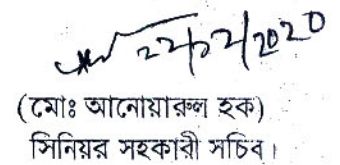 22/12/2020
(মোঃ আনোয়ারুল হক)
সিনিয়র সহকারী সচিব।